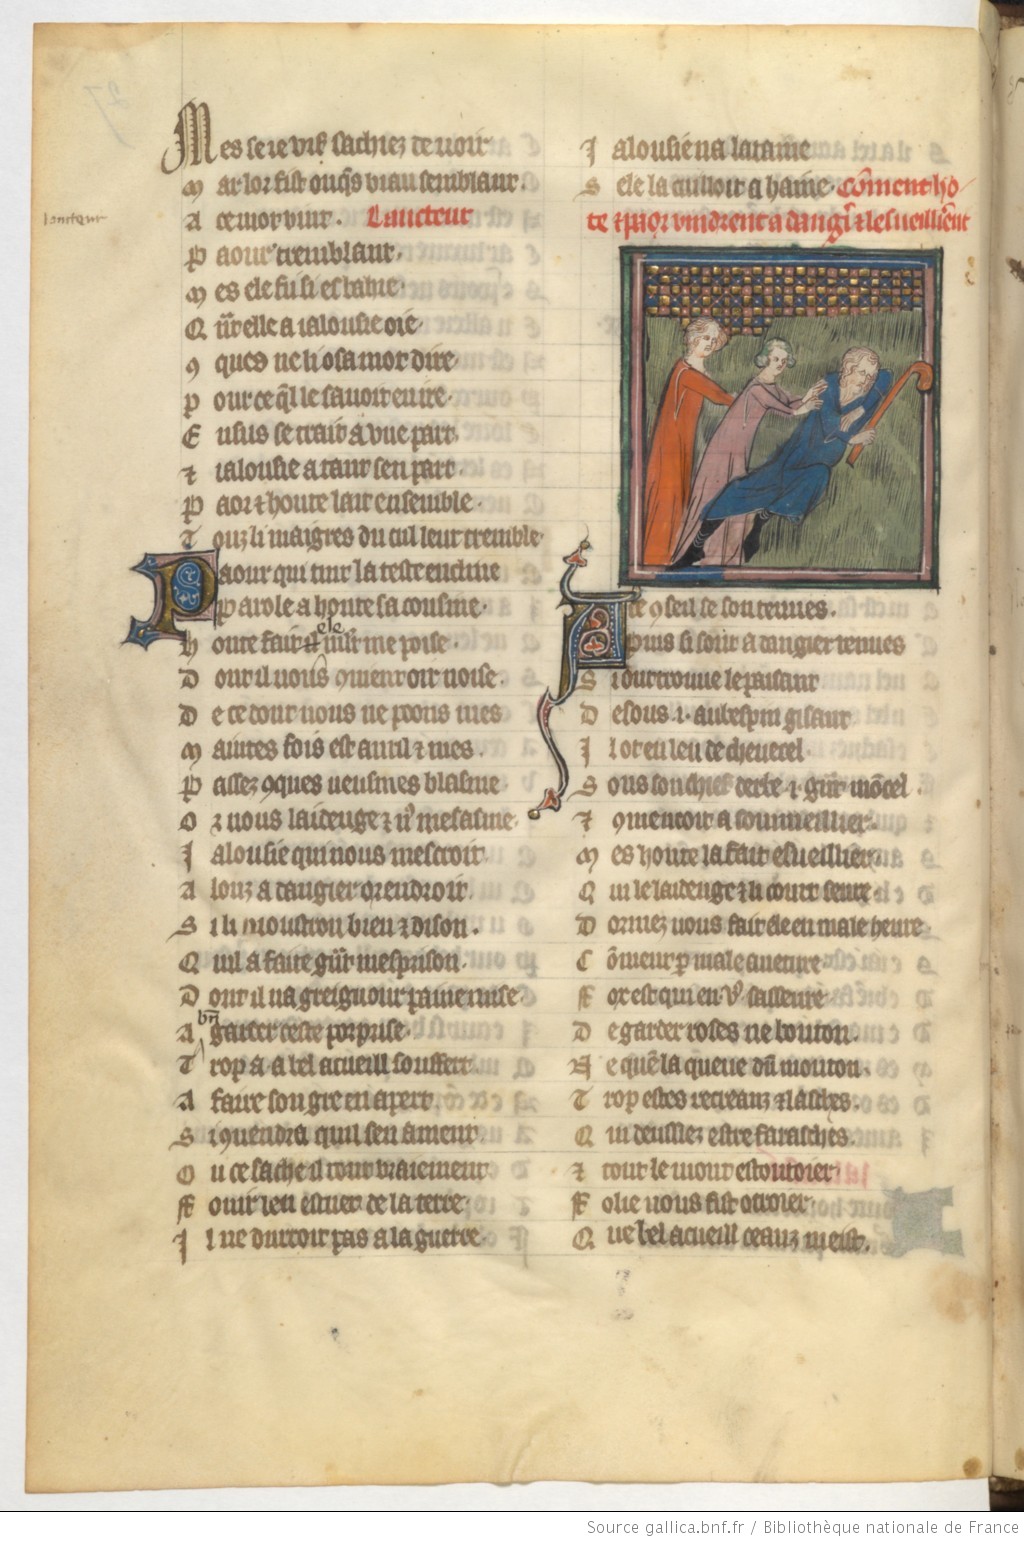 27
Mes se ie vif sachiez de uoir
Mar lor fist onqs biau semblant.
lancteur
A ce mot vint. Laucteur
Paour tremblant.
Mes ele fu si esbahie.
Qnt elle a ialousie oie.
9ques ne li osa mot dire.
Pour ce ql le sauoit en ire.
Ensus se trait a vne part.
Et ialousie a tant sen part.
Paor et honte lait ensemble.
Touz li maigres du cul leur tremble.
Paour qui tint la teste encline
Parole a honte sa cousine.
Honte fait ele mlt me poise.
Dont il nous 9uient oir noise.
De ce dont nous ne poons mes
Maintes fois est auril et mes.
Passez 9ques neusmes blasme
Or nous laidenge et nos mesasme.
Ialousie qui nous mescroit
Alonz a dangier orendroit.
Si li moustron bien et dison.
Quil a faite gnt mesprison.
Dont il na greignour paine mise
A bn garder ceste porprise.
Trop a a bel acueill souffert.
A faire son gre en apert.
Si 9uendra quil sen ament.
Ou ce sache il tout vraiement
Fouir len estuet de la terre.
Il ne durroit pas a la guerre.
Ialousie na lataine
Sele la cuilloit a haine. Coment ho
te et paor vindrent a dangr et lesueillient
A ce 9seil se sont tenues.
Puis si sont a dangier uenues
Si ont trouue le paisant
Desous .i. aubespin gisant
Il ot en leu de cheuecel
Sous son chief derbe .i. gnt moncel.
Et 9mencoit a sommeillier.
Mes honte la fait esueillier.
Qui le laidenge et li court seure.
Dormez uous fait ele en male heure
Coment p male auenture
Fox est qui en vos sasseure
De garder roses ne bouton.
Ne quen la queue dun mouton.
Trop estes recreanz et lasches.
Qui deussiez estre farasches.
Et tout le mont estoutoier.
Folie uous fist otroier.
Que bel acueill ceanz meist.
Source gallica.bnf.fr / Bibliothèque nationale de France